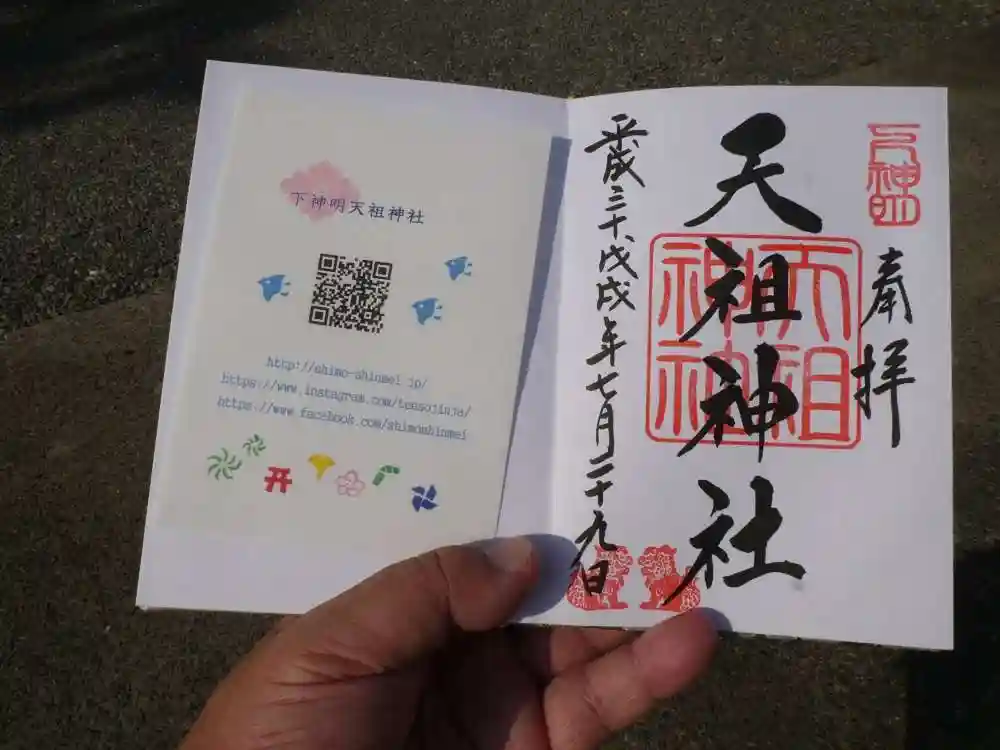 下神明天祖神社
http://shimo-shinmei.jp/
https://www.instagram.com/tensojinja/
https://www.facebook.com/shimoshinmei
下神明
奉拝
天祖神社
天祖
神社
平成三十戊戌年七月二十九日